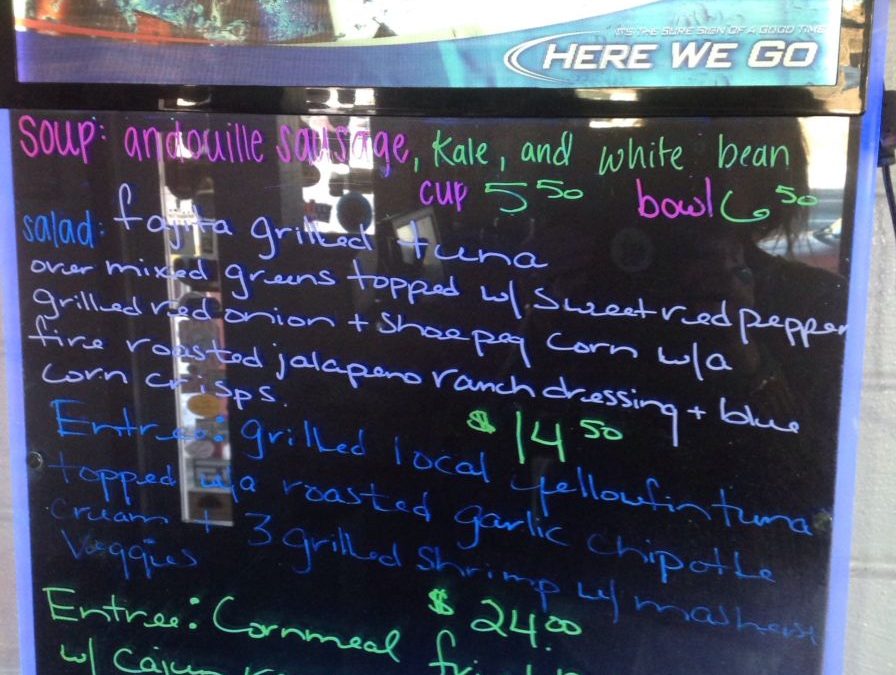 IT'S THE SURE SIGN OF A GOOD TIME
HERE WE GO
SOUP: andouille sausage, Kale, and white bean
cup 5 50 bowl 6 50
salad: fajita grilled tuna
over mixed greens topped w/ sweet red pepper
grilled red onion + shoepeg corn w/a
fire roasted jalapeno ranch dressing + blue
corn crisps.
$ 14 50
Entree: grilled local yellowfin tuna
topped w/a roasted garlic chipotle
cream + 3 grilled shrimp w/ mashers
Veggies
$ 24.00
Entree: Cornmeal
w/ Cajun